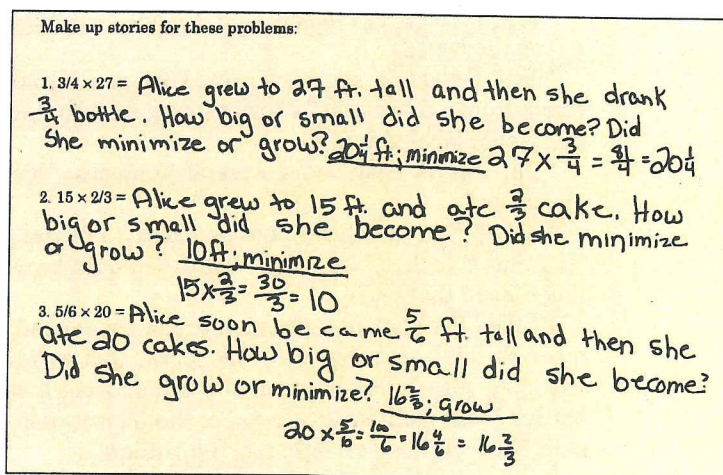 Make up stories for these problems:
1. 3/4 × 27 = Alice grew to 27 ft. tall and then she drank
3/4 bottle. How big or small did she become? Did
She minimize or grow? 20 1/4 ft; minimize 27 × 3/4 = 81/4 = 20 1/4
2. 15 × 2/3 = Alice grew to 15 ft. and ate 2/3 cake. How
big or small did she become? Did she minimize
or grow? 10 ft; minimize
15 × 2/3 = 30/3 = 10
3. 5/6 × 20 = Alice soon became 5/6 ft. tall and then she
ate 20 cakes. How big or small did she become?
Did She grow or minimize? 16 2/3; grow
20 × 5/6 = 100/6 = 16 4/6 = 16 2/3